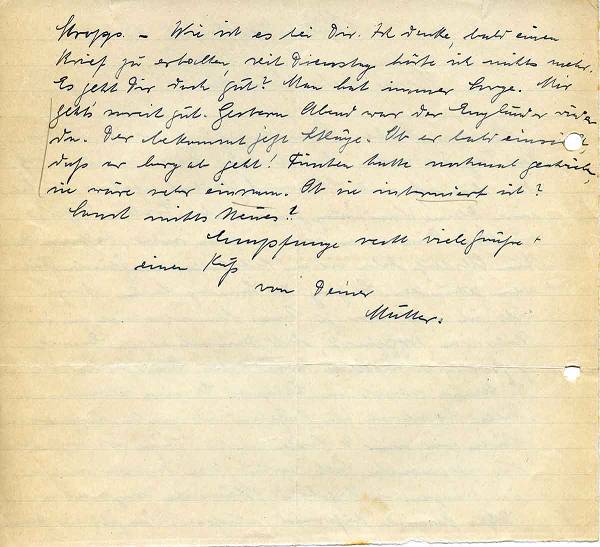 Stropps. – Wie ist es bei Dir. Ich denke, bald einen
Brief zu erhalten, seit Dienstag hörte ich nichts mehr.
Es geht Dir doch gut? Man hat immer Sorge. Mir
geht's soweit gut. Gestern Abend war der Engländer wieder
da. Der bekommt jetzt Schläge. Ob er bald einsieht
daß er bergab geht! Tinchen hatte nochmal geschrieben,
sie wäre sehr einsam. Ob sie interniert ist?
Sonst nichts Neues?
Empfange recht viele Grüße +
einen Kuß
von Deiner
Mutter.